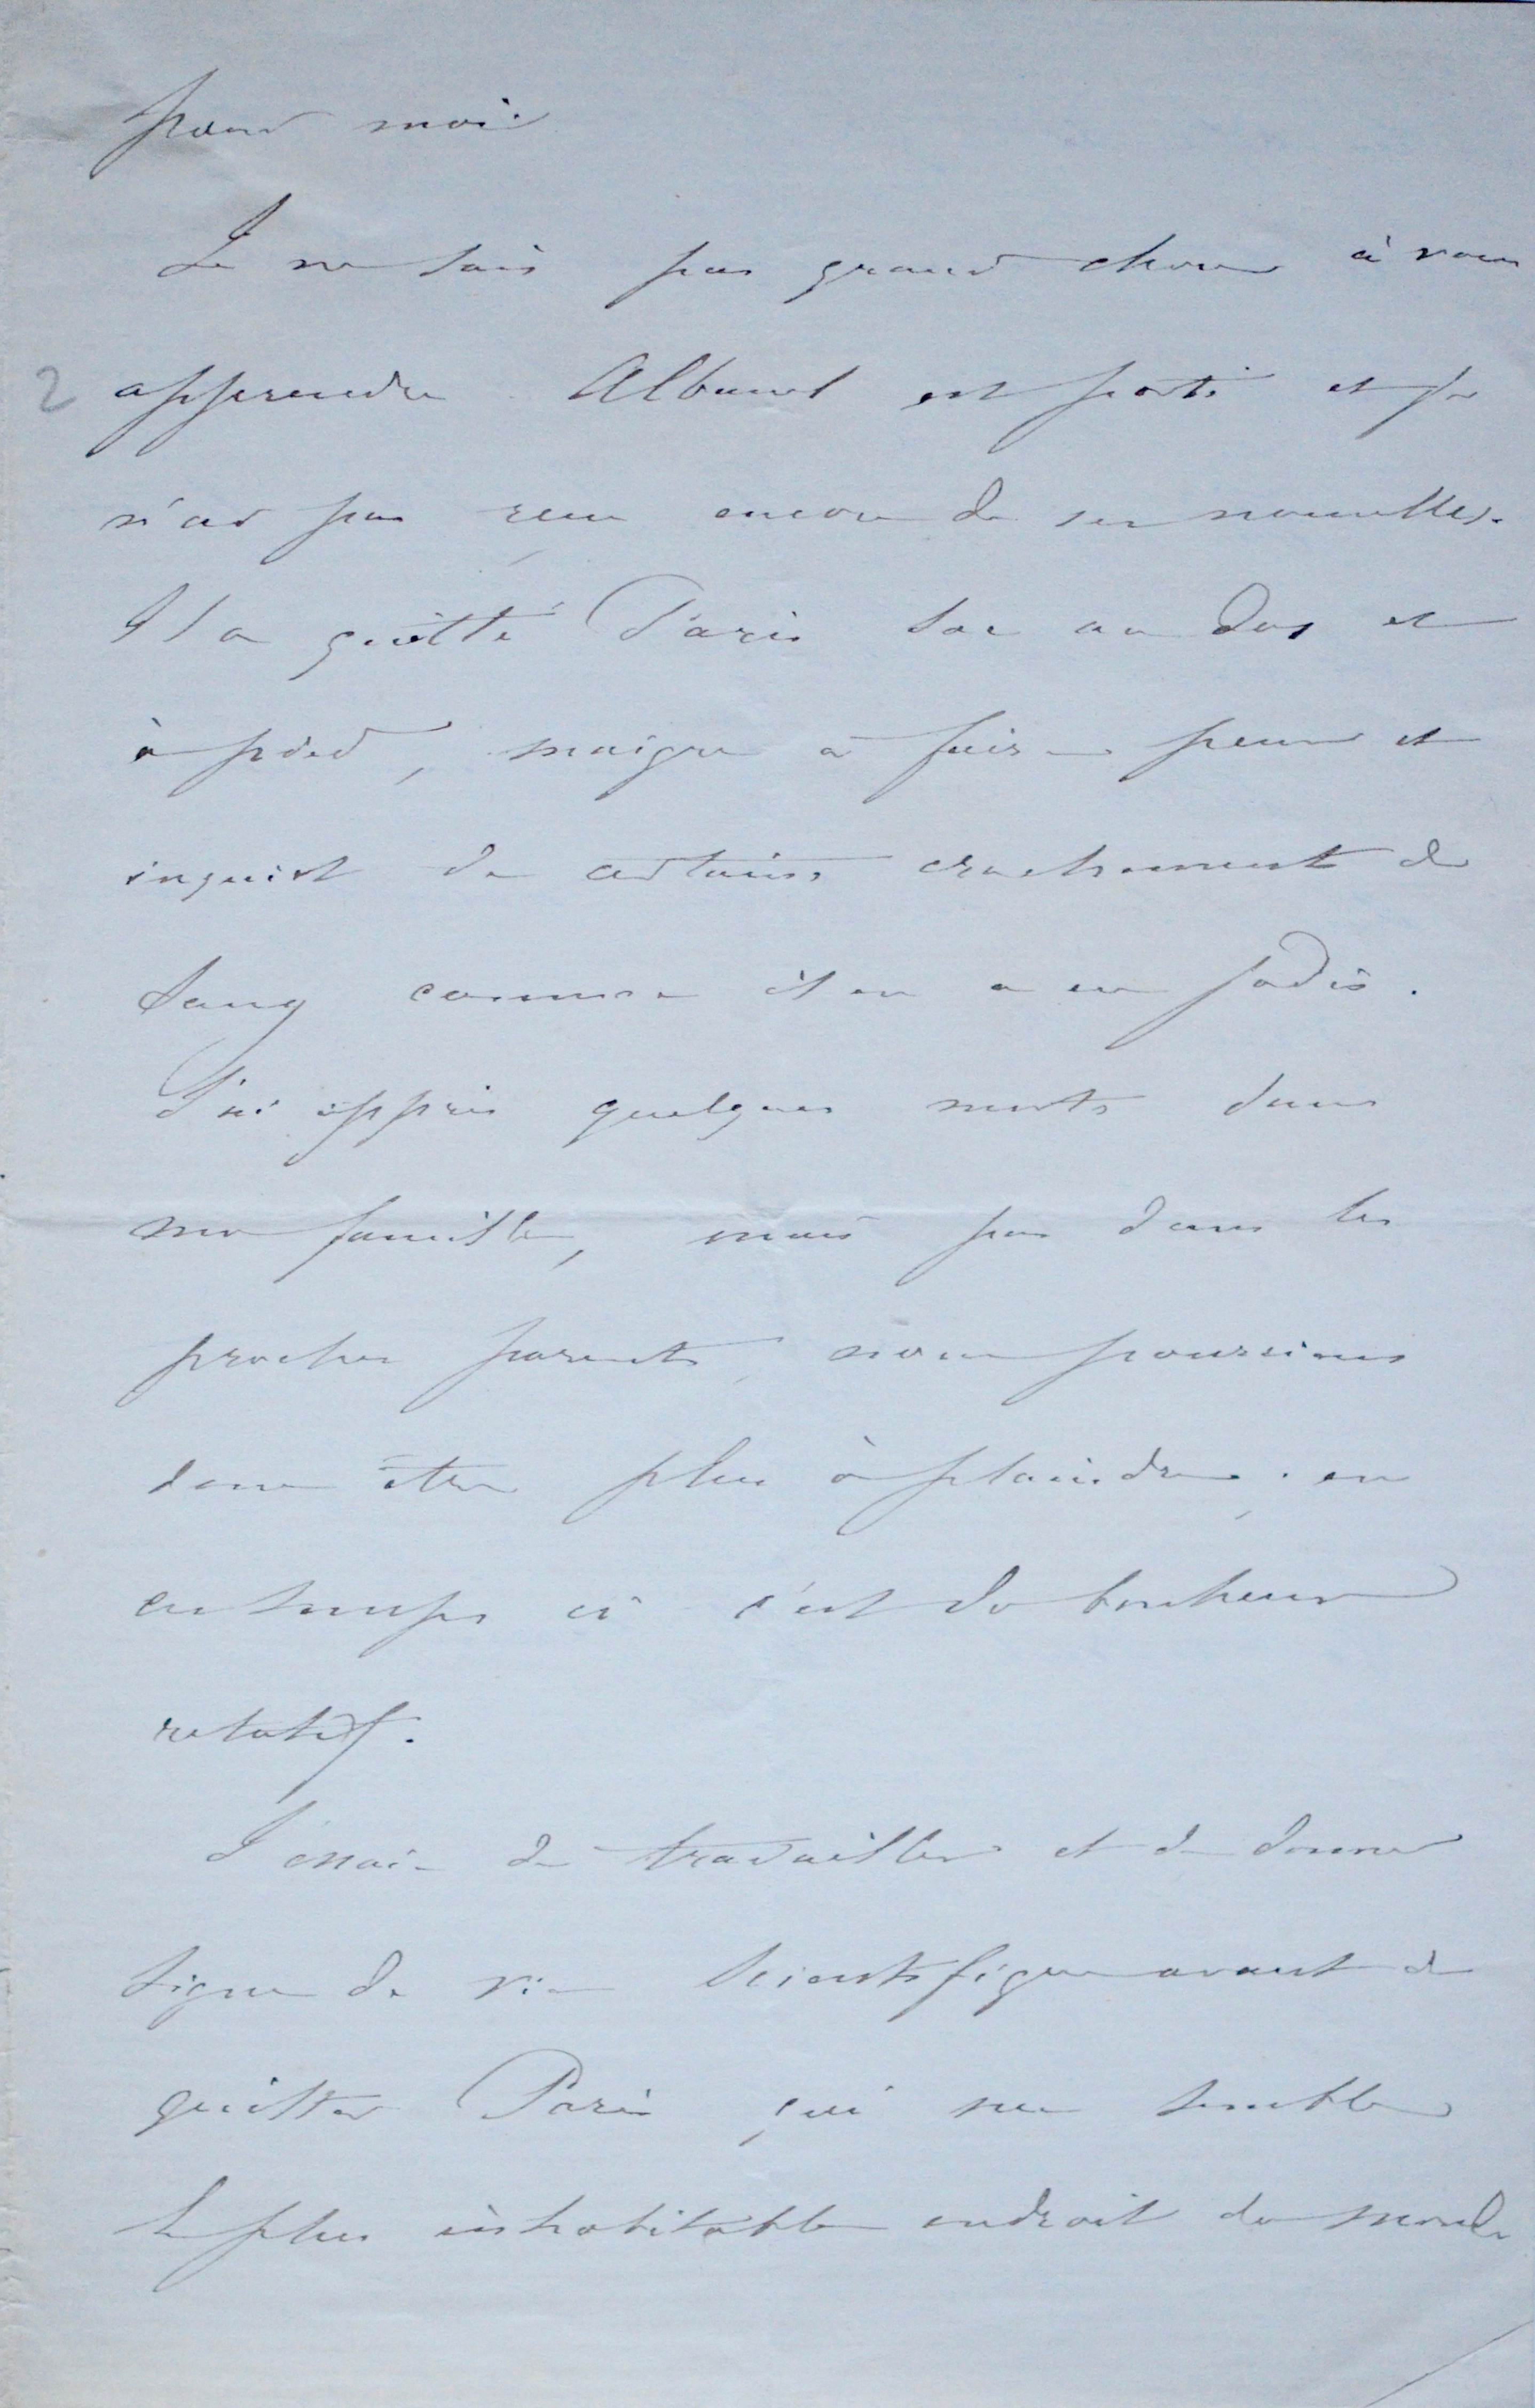 pour moi
Je ne sais pas grand chose à vous
2 apprendre Albanel est parti et je
n'ai pas reçu encore de ses nouvelles.
Il a quitté Paris sac au dos et
à pied, maigre à faire peur et
inquiet de certains crachement de
sang comme il en a eu jadis.
J'ai appris quelques morts dans
ma famille, mais pas dans les
proches parents, nous pourrions
donc être plus à plaindre ; en
ces temps ci c'est du bonheur
relatif.
J'essaie de travailler et de donner
signe de vie scientifique avant de
quitter Paris qui me semble
le plus inhabitable endroit du monde